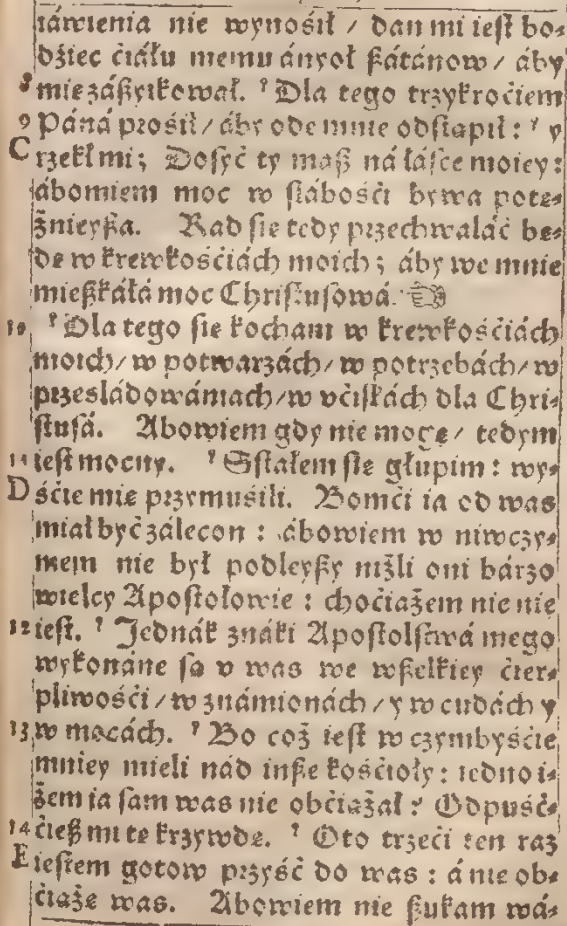 iáwienia nie wynośił / dan mi iest bo⸗
dźiec ćiáłu memu ányoł ßátánow / áby
8 mie záßyikował. ? Dla tego trzykroćiem
9 Páná prośił / áby ode mnie odstąpił : ? y
C rzekł mi; Dosyć ty maß ná łásce moiey:
ábowiem moc w słábośći bywa potę⸗
żnieyßa. Rad sie tedy przechwaláć bę⸗
dę w krewkośćiách moich ; áby we mnie
mießkáłá moc Christusowá. ☜
10 ? Dla tego sie kocham w krewkośćiách
moich / w potwarzách / w potrzebách / w
prześládowániach / w vćiskách dla Chri⸗
stusá. Abowiem gdy nie mogę / tedym
11 iest mocny. ? Sstałem sie głupim : wy⸗
D śćie mie przymuśili. Bomći ia od was
miał być zálecon : ábowiem w niwczy⸗
mem nie był podleyßy niżli oni bárzo
wielcy Apostołowie : choćiażem nie nie
12 iest. ? Jednák znáki Apostolstwá mego
wykonáne są v was we wßelkiey ćier⸗
pliwośći / w známionách / y w cudách y
13 w mocách. ? Bo coż iest w czymbyśćie
mniey mieli nád inße kośćioły : iedno i⸗
żem ia sam was nie obćiążał ? Odpuść⸗
14 ćieß mi tę krzywdę. ? Oto trzeći ten raz
E iestem gotow przyść do was : á nie ob⸗
ćiążę was. Abowiem nie ßukam wá⸗